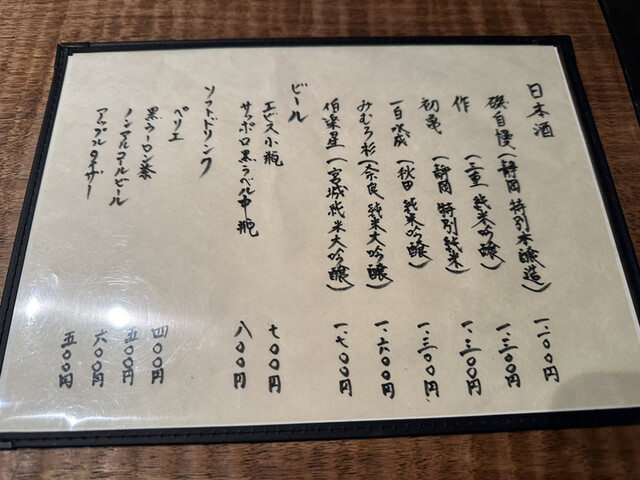 日本酒
磯自慢（静岡 特別本醸造） 一.二〇〇円
作（三重 純米吟醸） 一.三〇〇円
初亀（静岡 特別純米） 一.二〇〇円
一白水成（秋田 純米吟醸） 一.三〇〇円
みむろ杉（奈良 純米大吟醸） 一.六〇〇円
伯楽星（宮城 純米大吟醸） 一.七〇〇円
ビール
エビス小瓶 七〇〇円
サッポロ黒ラベル中瓶 八〇〇円
ソフトドリンク
ペリエ 四〇〇円
黒ウーロン茶 五〇〇円
ノンアルコールビール 六〇〇円
アップルタイザー 五〇〇円